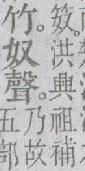 笯。洪興祖補
竹。奴聲。乃故
五部